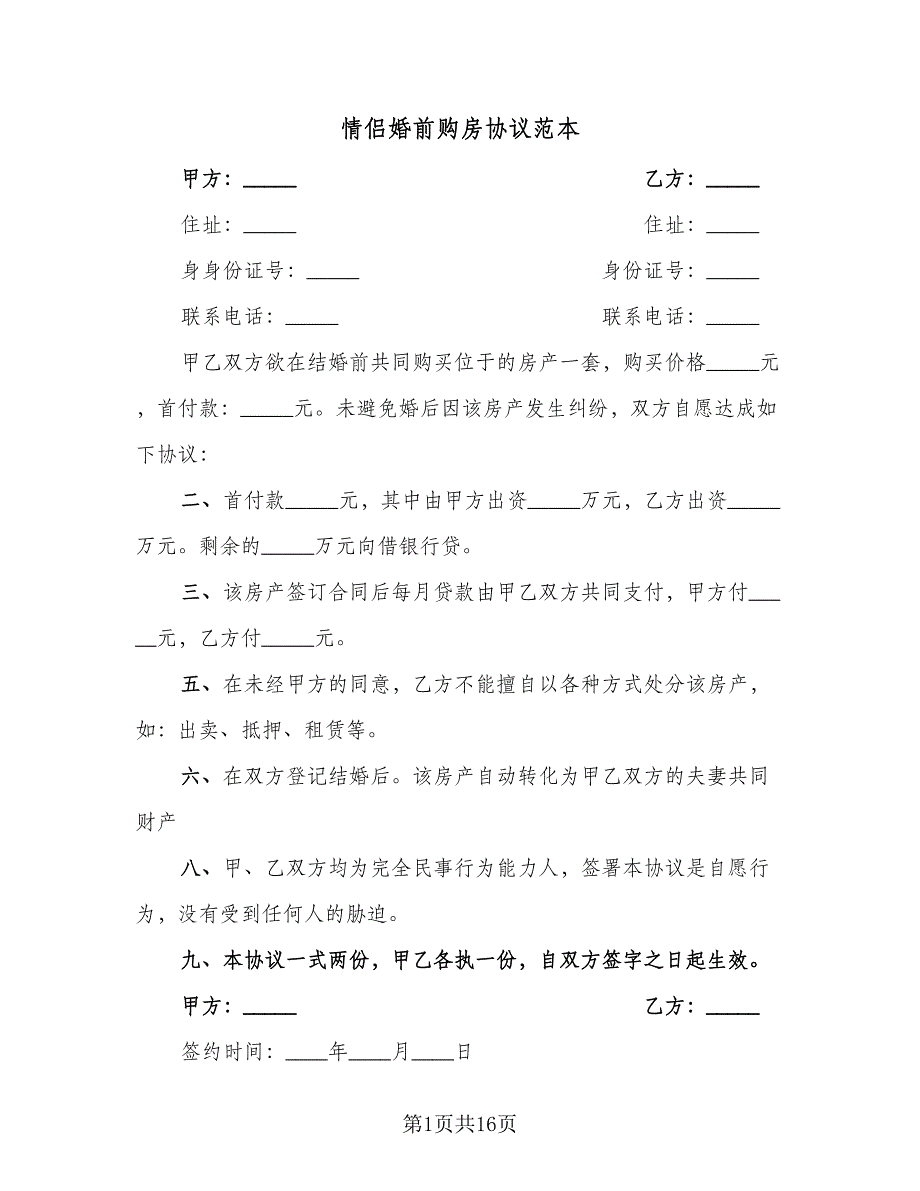 情侣婚前购房协议范本
甲方：_____ 乙方：_____
住址：_____ 住址：_____
身身份证号：_____ 身份证号：_____
联系电话：_____ 联系电话：_____
甲乙双方欲在结婚前共同购买位于的房产一套，购买价格_____元
，首付款：_____元。未避免婚后因该房产发生纠纷，双方自愿达成如
下协议：
二、首付款_____元，其中由甲方出资_____万元，乙方出资_____
万元。剩余的_____万元向借银行贷。
三、该房产签订合同后每月贷款由甲乙双方共同支付，甲方付___
__元，乙方付_____元。
五、在未经甲方的同意，乙方不能擅自以各种方式处分该房产，
如：出卖、抵押、租赁等。
六、在双方登记结婚后。该房产自动转化为甲乙双方的夫妻共同
财产
八、甲、乙双方均为完全民事行为能力人，签署本协议是自愿行
为，没有受到任何人的胁迫。
九、本协议一式两份，甲乙各执一份，自双方签字之日起生效。
甲方：_____ 乙方：_____
签约时间：____年____月____日
第1页共16页